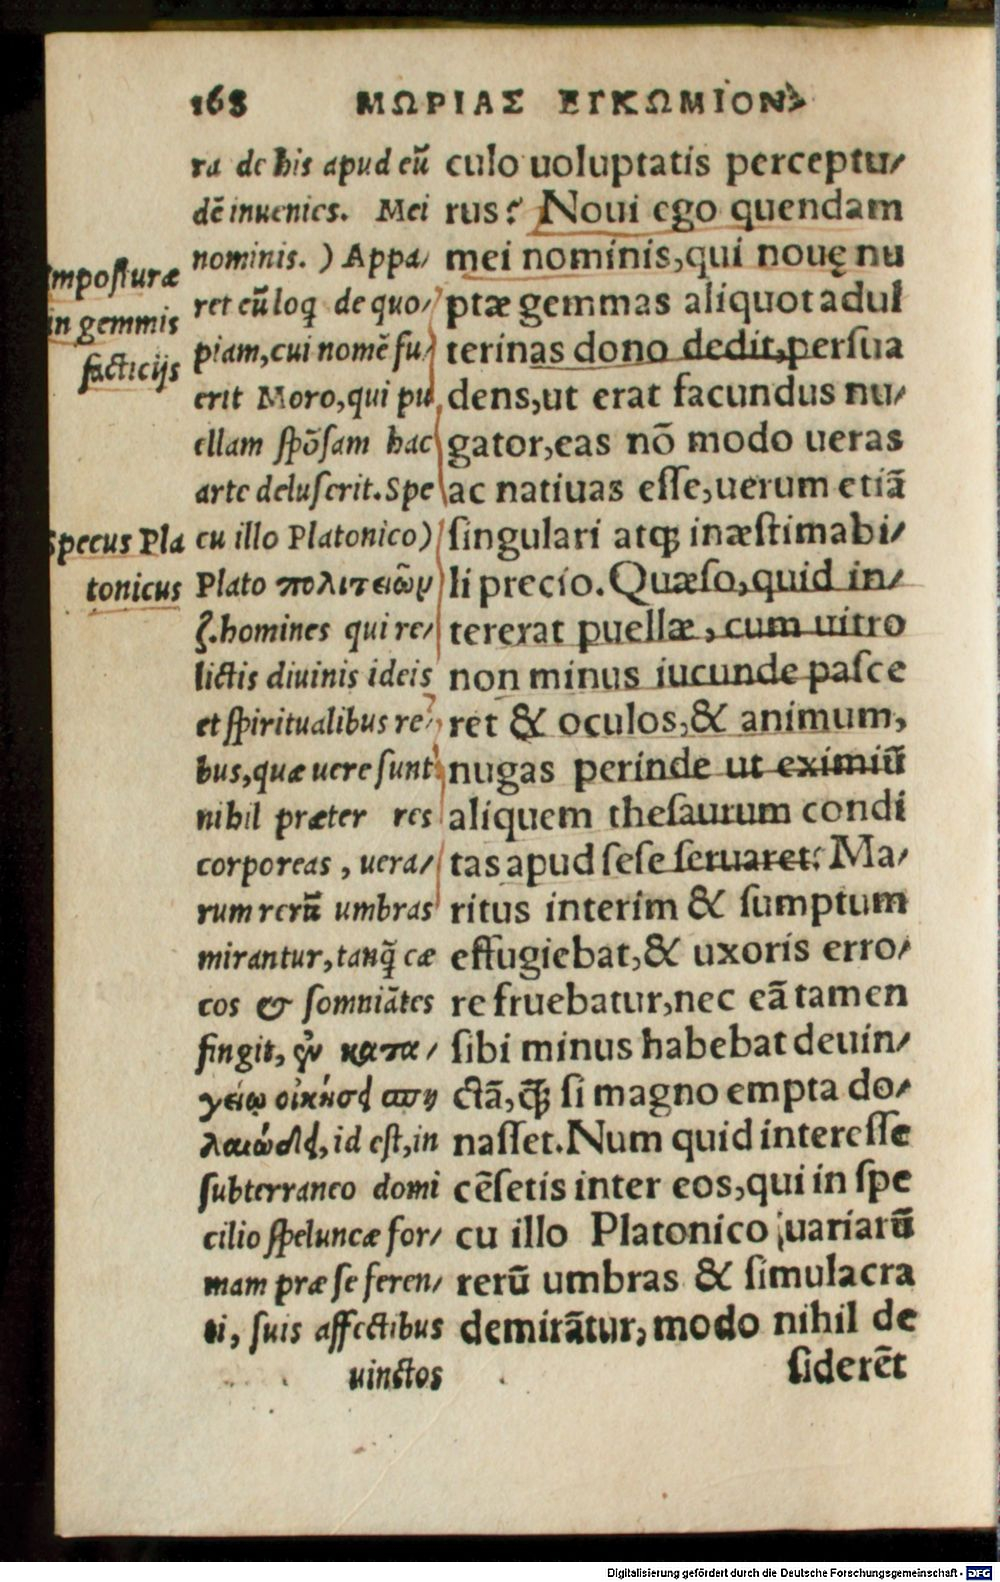 168 ΜΩΡΙΑΣ ΕΓΚΩΜΙΟΝ
Imposturæ
in gemmis
facticijs
Specus Pla
tonicus
ra de his apud eũ
dẽ inuenies. Mei
nominis. ) Appa/
ret eũ loq̃ de quo/
piam, cui nomẽ fu/
erit Moro, qui pu
ellam spõsam hac
arte deluserit. Spe
cu illo Platonico)
Plato πολιτειῶν
ζ. homines qui re/
lictis diuinis ideis
et spiritualibus re/
bus, quæ uere sunt
nihil præter res
corporeas, uera/
rum rerũ umbras
mirantur, tanq̃ cæ
cos & somniãtes
fingit, ἐν κατα/
γείῳ οἰκήσει σπη
λαιώδει, id est, in
subterraneo domi
cilio speluncæ for/
mam præ se feren/
ti, suis affectibus
uinctos
culo uoluptatis perceptu/
rus? Noui ego quendam
mei nominis, qui nouę nu
ptæ gemmas aliquot adul
terinas dono dedit, persua
dens, ut erat facundus nu/
gator, eas nõ modo ueras
ac natiuas esse, uerum etiã
singulari atq; inæstimabi/
li precio. Quæso, quid in/
tererat puellæ, cum uitro
non minus iucunde pasce
ret & oculos, & animum,
nugas perinde ut eximiũ
aliquem thesaurum condi
tas apud sese seruaret? Ma/
ritus interim & sumptum
effugiebat, & uxoris erro/
re fruebatur, nec eã tamen
sibi minus habebat deuin/
ctã, q̃ si magno empta do/
nasset. Num quid interesse
cẽsetis inter eos, qui in spe
cu illo Platonico uariarũ
rerũ umbras & simulacra
demirãtur, modo nihil de
siderẽt
Digitalisierung gefördert durch die Deutsche Forschungsgemeinschaft - DFG